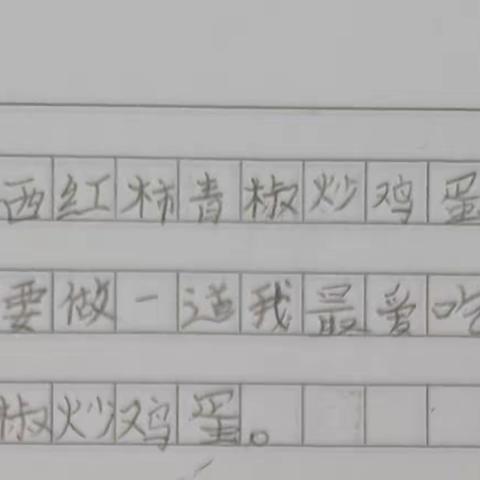 西红柿青椒炒鸡蛋
要做一道我最爱吃
椒炒鸡蛋。